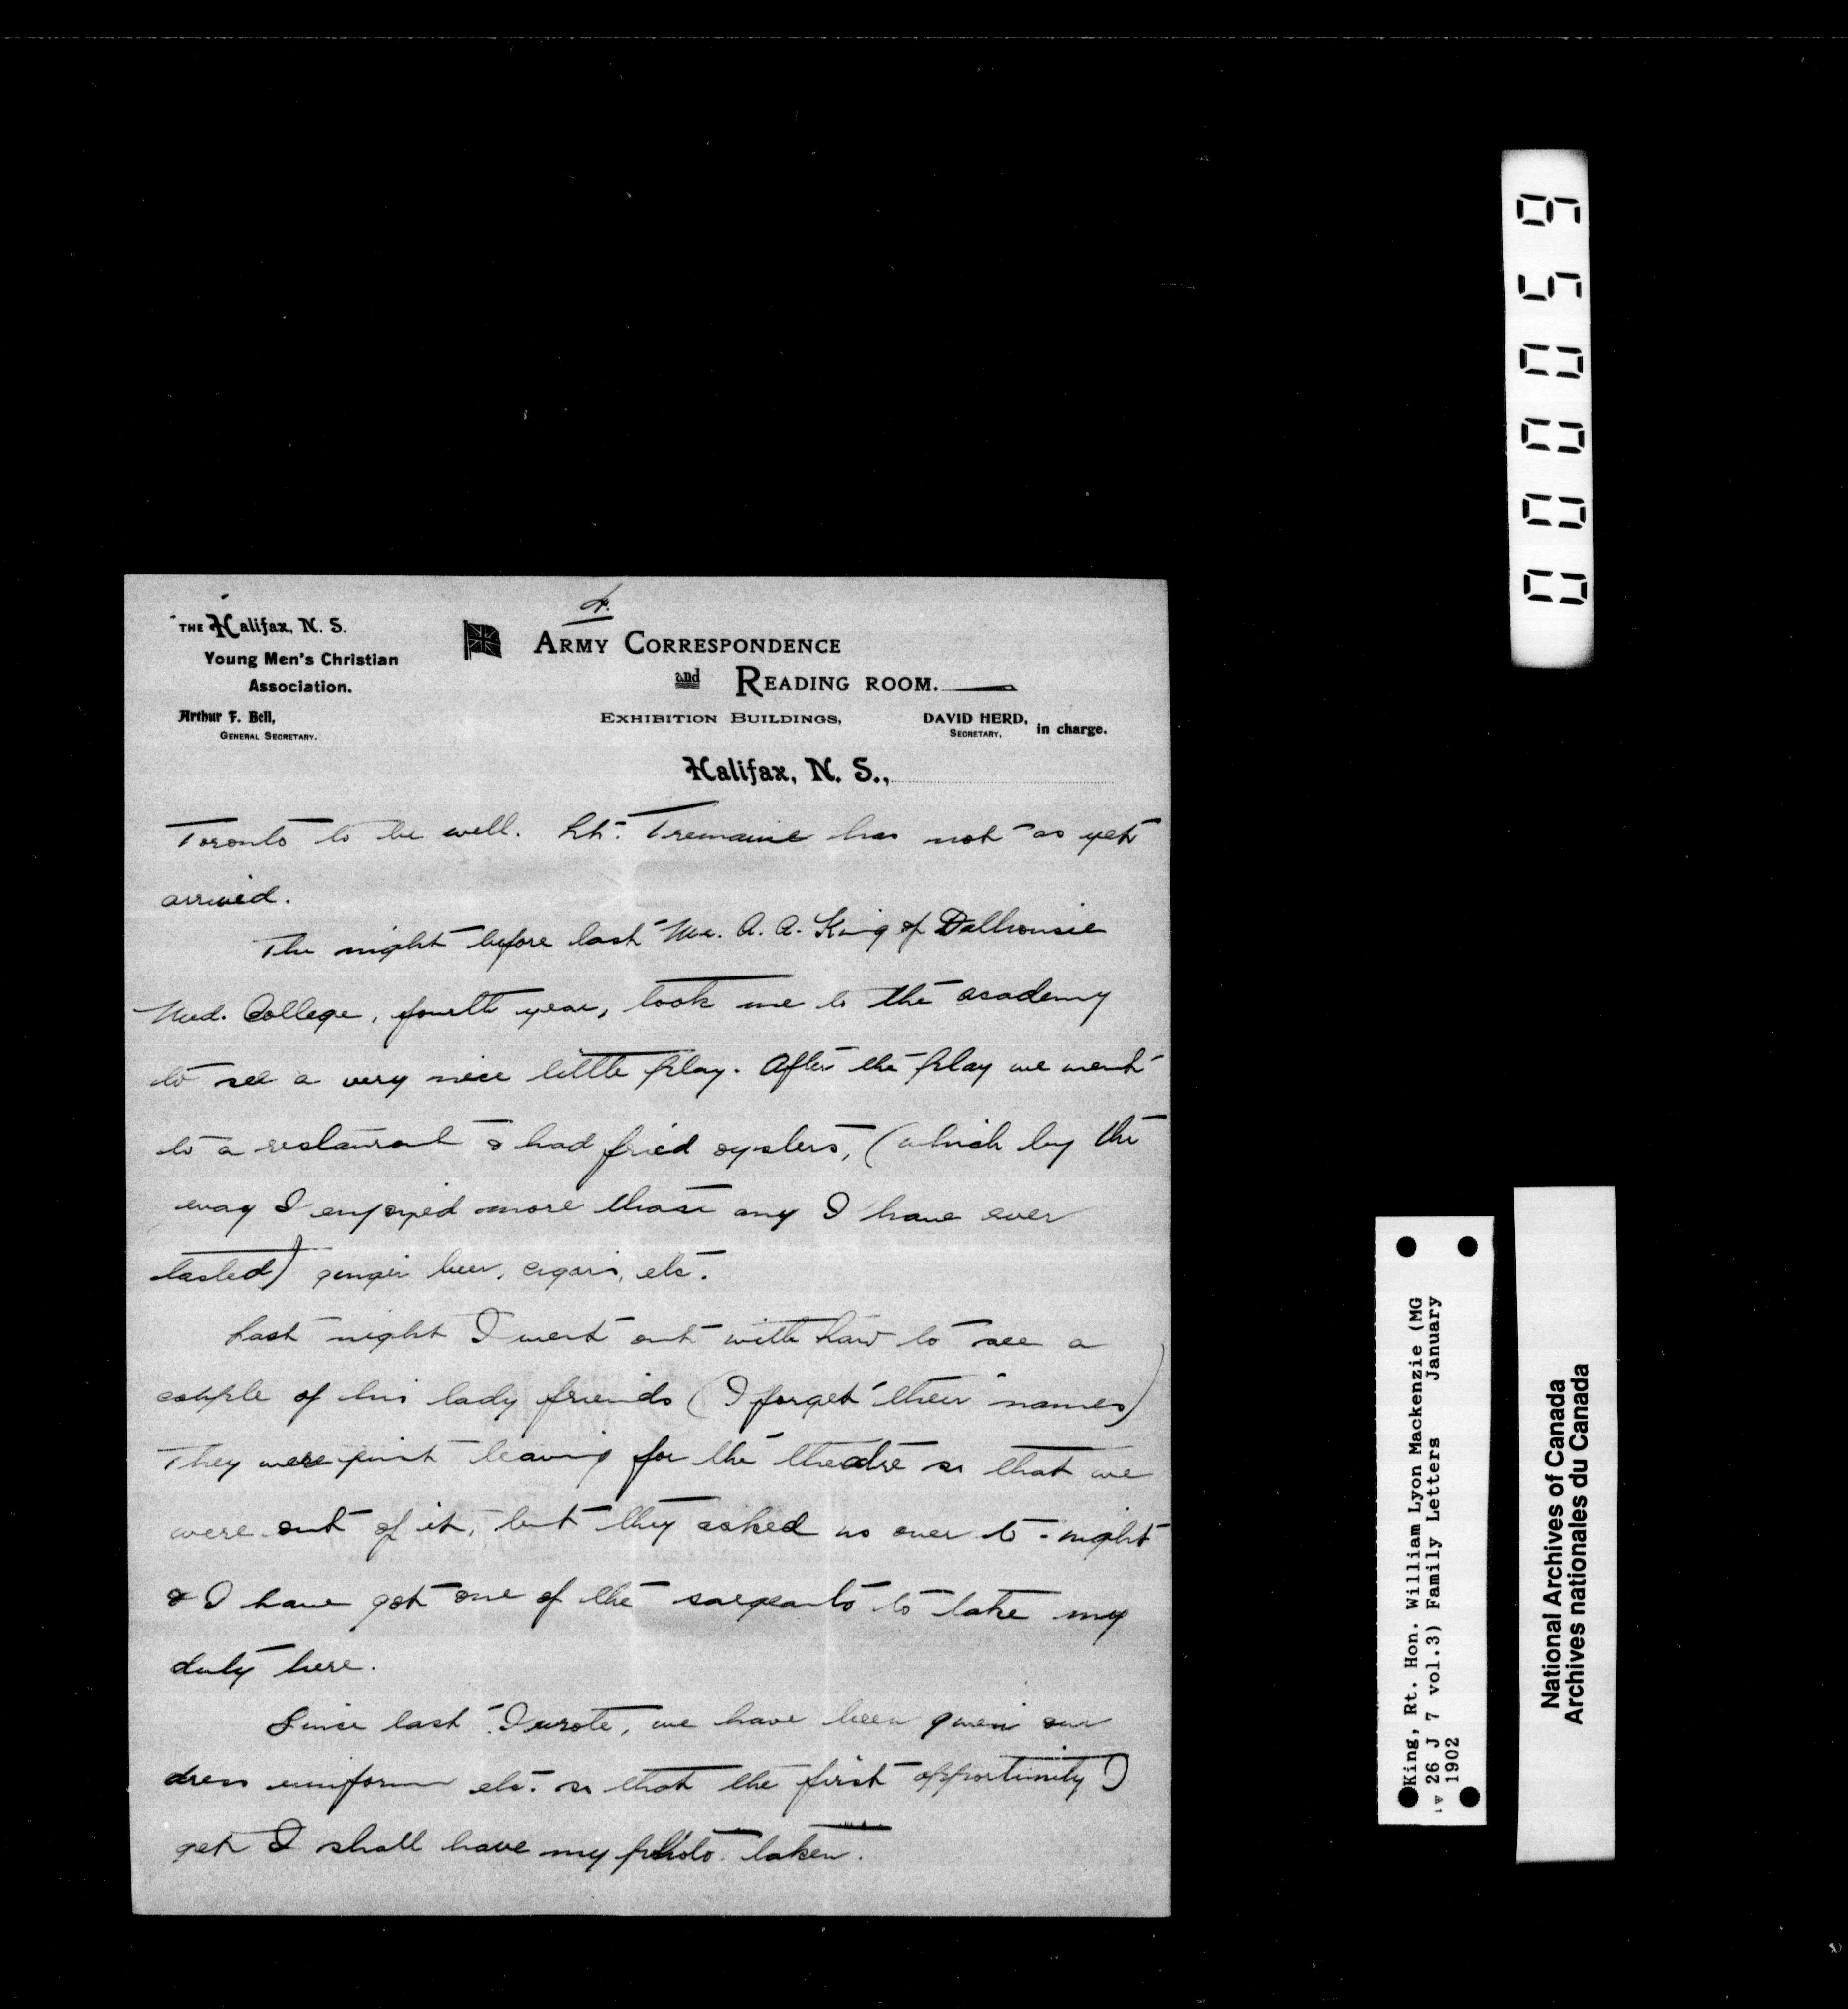 4.
THE Halifax, N. S.
Young Men's Christian
Association.
Arthur F. Bell,
GENERAL SECRETARY.
ARMY CORRESPONDENCE
and READING ROOM.
EXHIBITION BUILDINGS,
DAVID HERD,
SECRETARY.
in charge.
Halifax, N. S.,
Toronto to be well. Lt. Tremaine has not as yet
arrived.
The night before last Mr. A. A. King of Dalhousie
Med. College, fourth year, took me to the academy
to see a very nice little play. After the play we went
to a restaurant & had fried oysters, (which by the
way I enjoyed more than any I have ever
tasted) ginger beer, cigars, etc.
Last night I went out with Law to see a
couple of his lady friends (I forget their names)
They were just leaving for the theatre so that we
were out of it, but they asked us over to-night
& I have got one of the sargeants to take my
duty here.
Since last I wrote, we have been given our
dress uniform etc. so that the first opportunity I
get I shall have my photo. taken.
000059
King, Rt. Hon. William Lyon Mackenzie (MG
26 J 7 vol.3) Family Letters January
1902
National Archives of Canada
Archives nationales du Canada